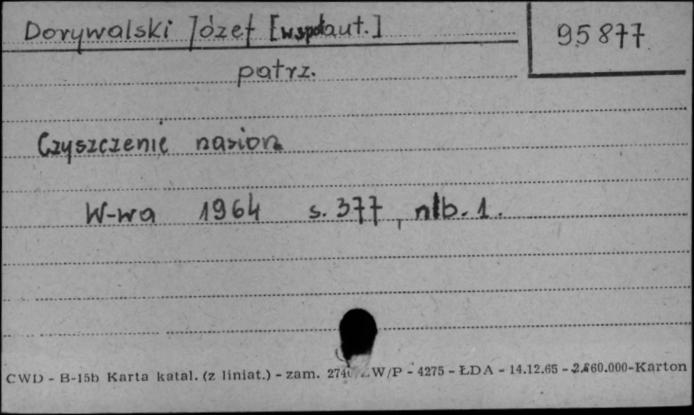 Dorywalski Józef [współaut.]
95877
patrz.
Czyszczenie nasion
W-wa 1964 s. 377, nlb. 1.
CWD - B-15b Karta katal. (z liniat.) - zam. W/P - 4275 - ŁDA - 14.12.65 - 2.860.000-Karton